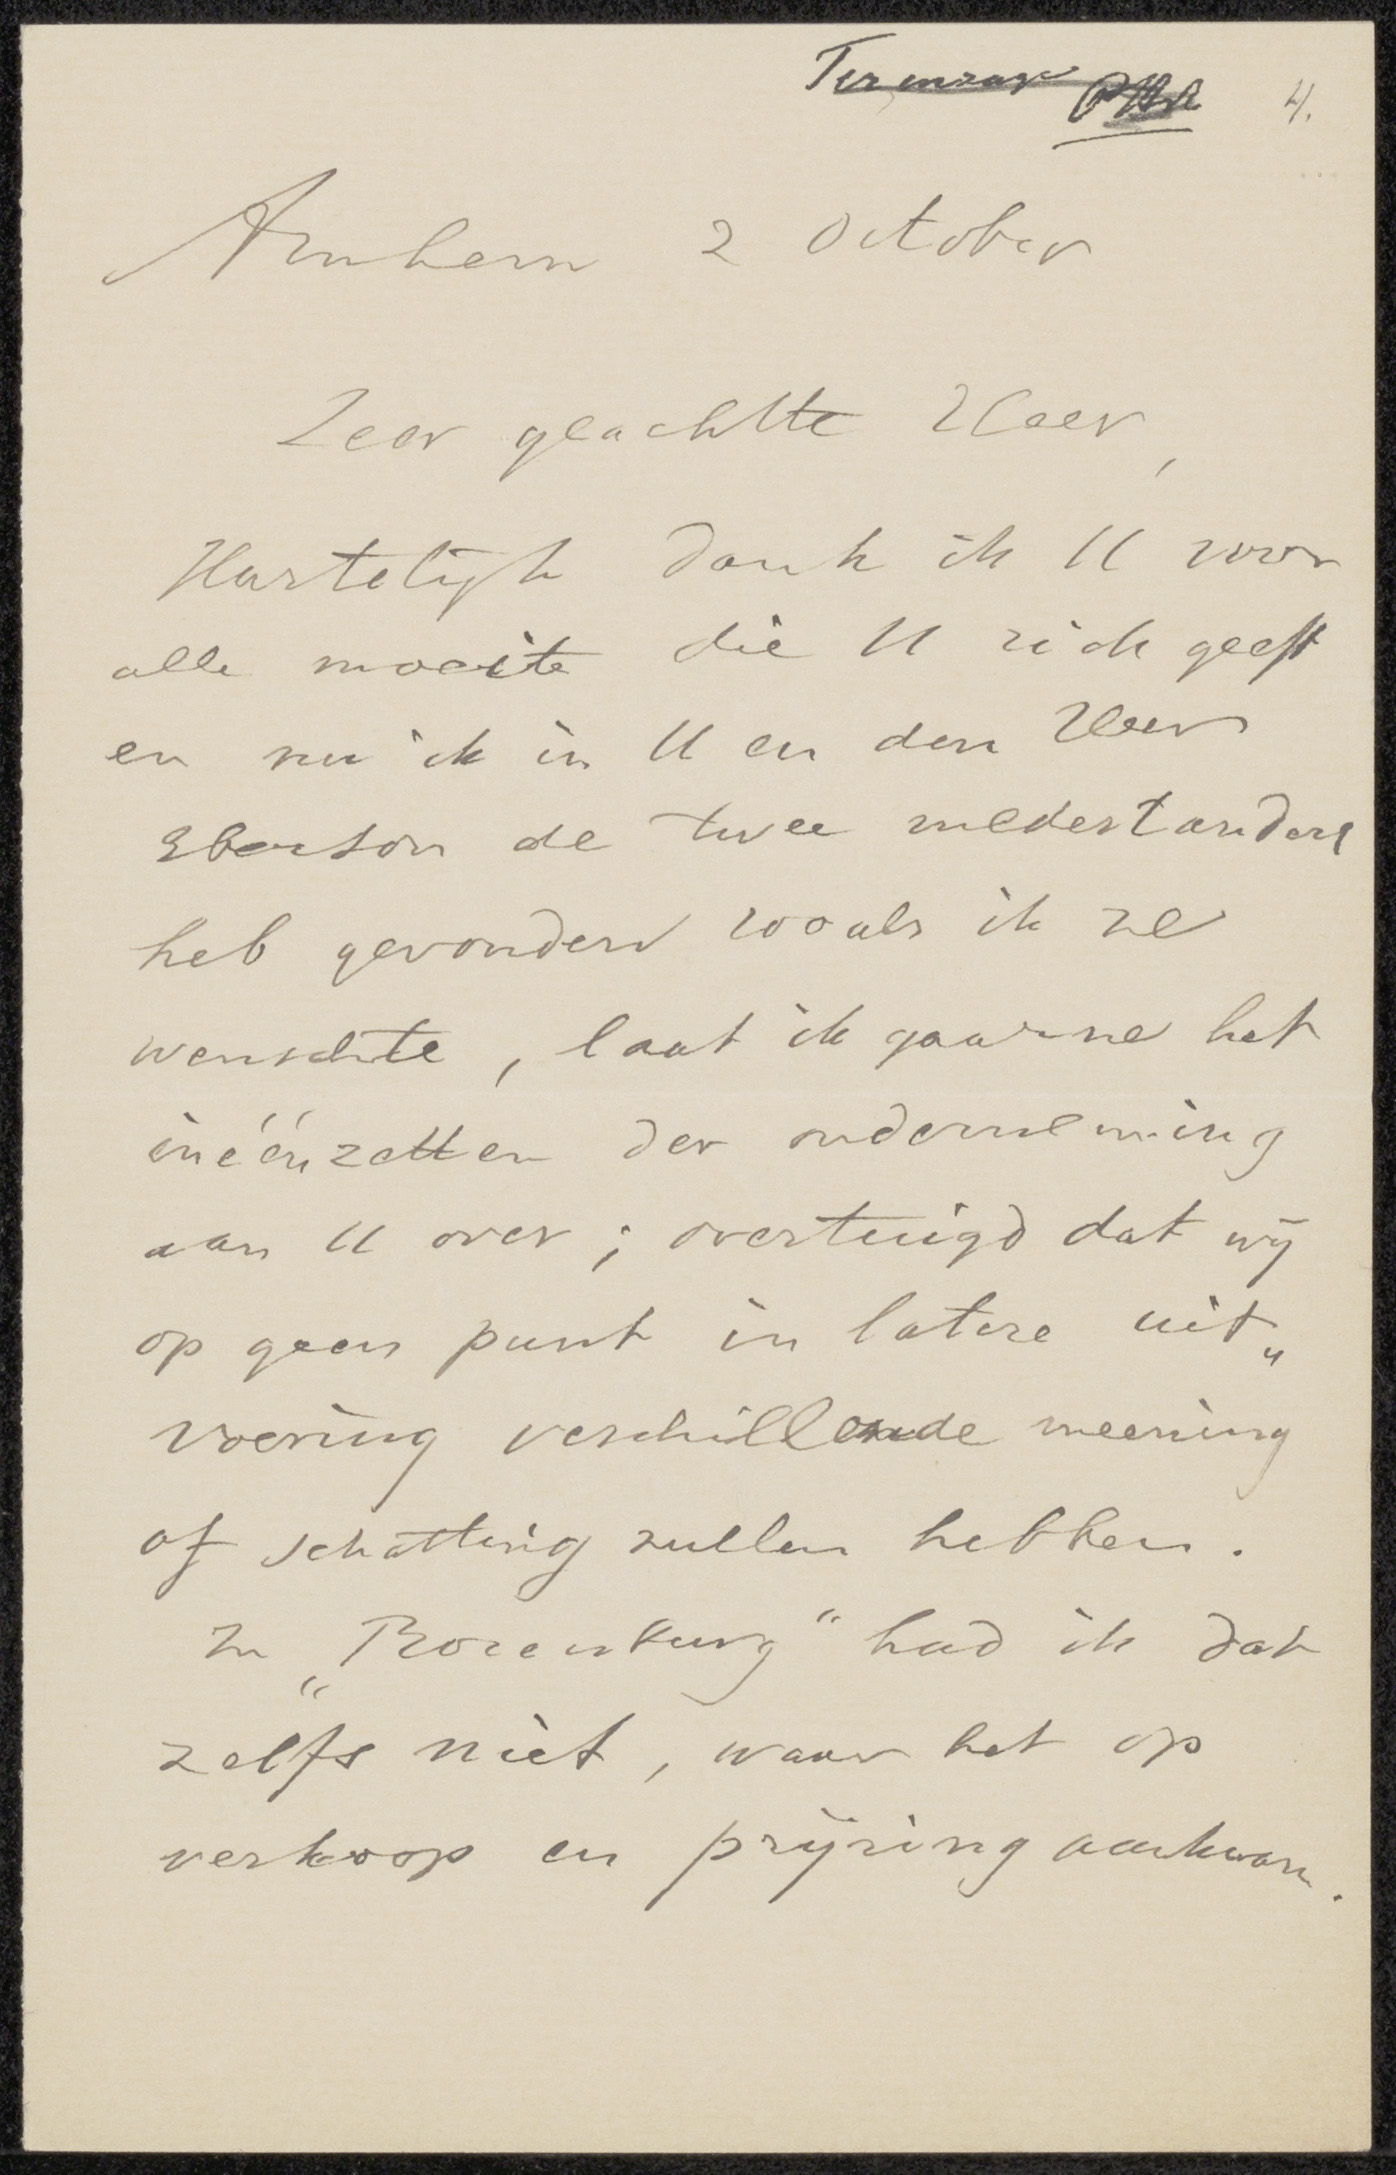 Ter inzage
4.
Arnhem 2 October
Zeer geachtte Heer,
Hartelijk dank ik U voor
alle moeite die U zich geeft
en nu ik in U en den Heer
Eberson de twee medestanders
heb gevonden zooals ik ze
wenschte, laat ik gaarne het
inéénzetten der onderneming
aan U over; overtuigd dat wij
op geen punt in latere uit„
voering verschillende meening
of schatting zullen hebben.
In „Rozenburg" had ik dat
zelfs niet, waar het op
verkoop en prijzing aankwam.